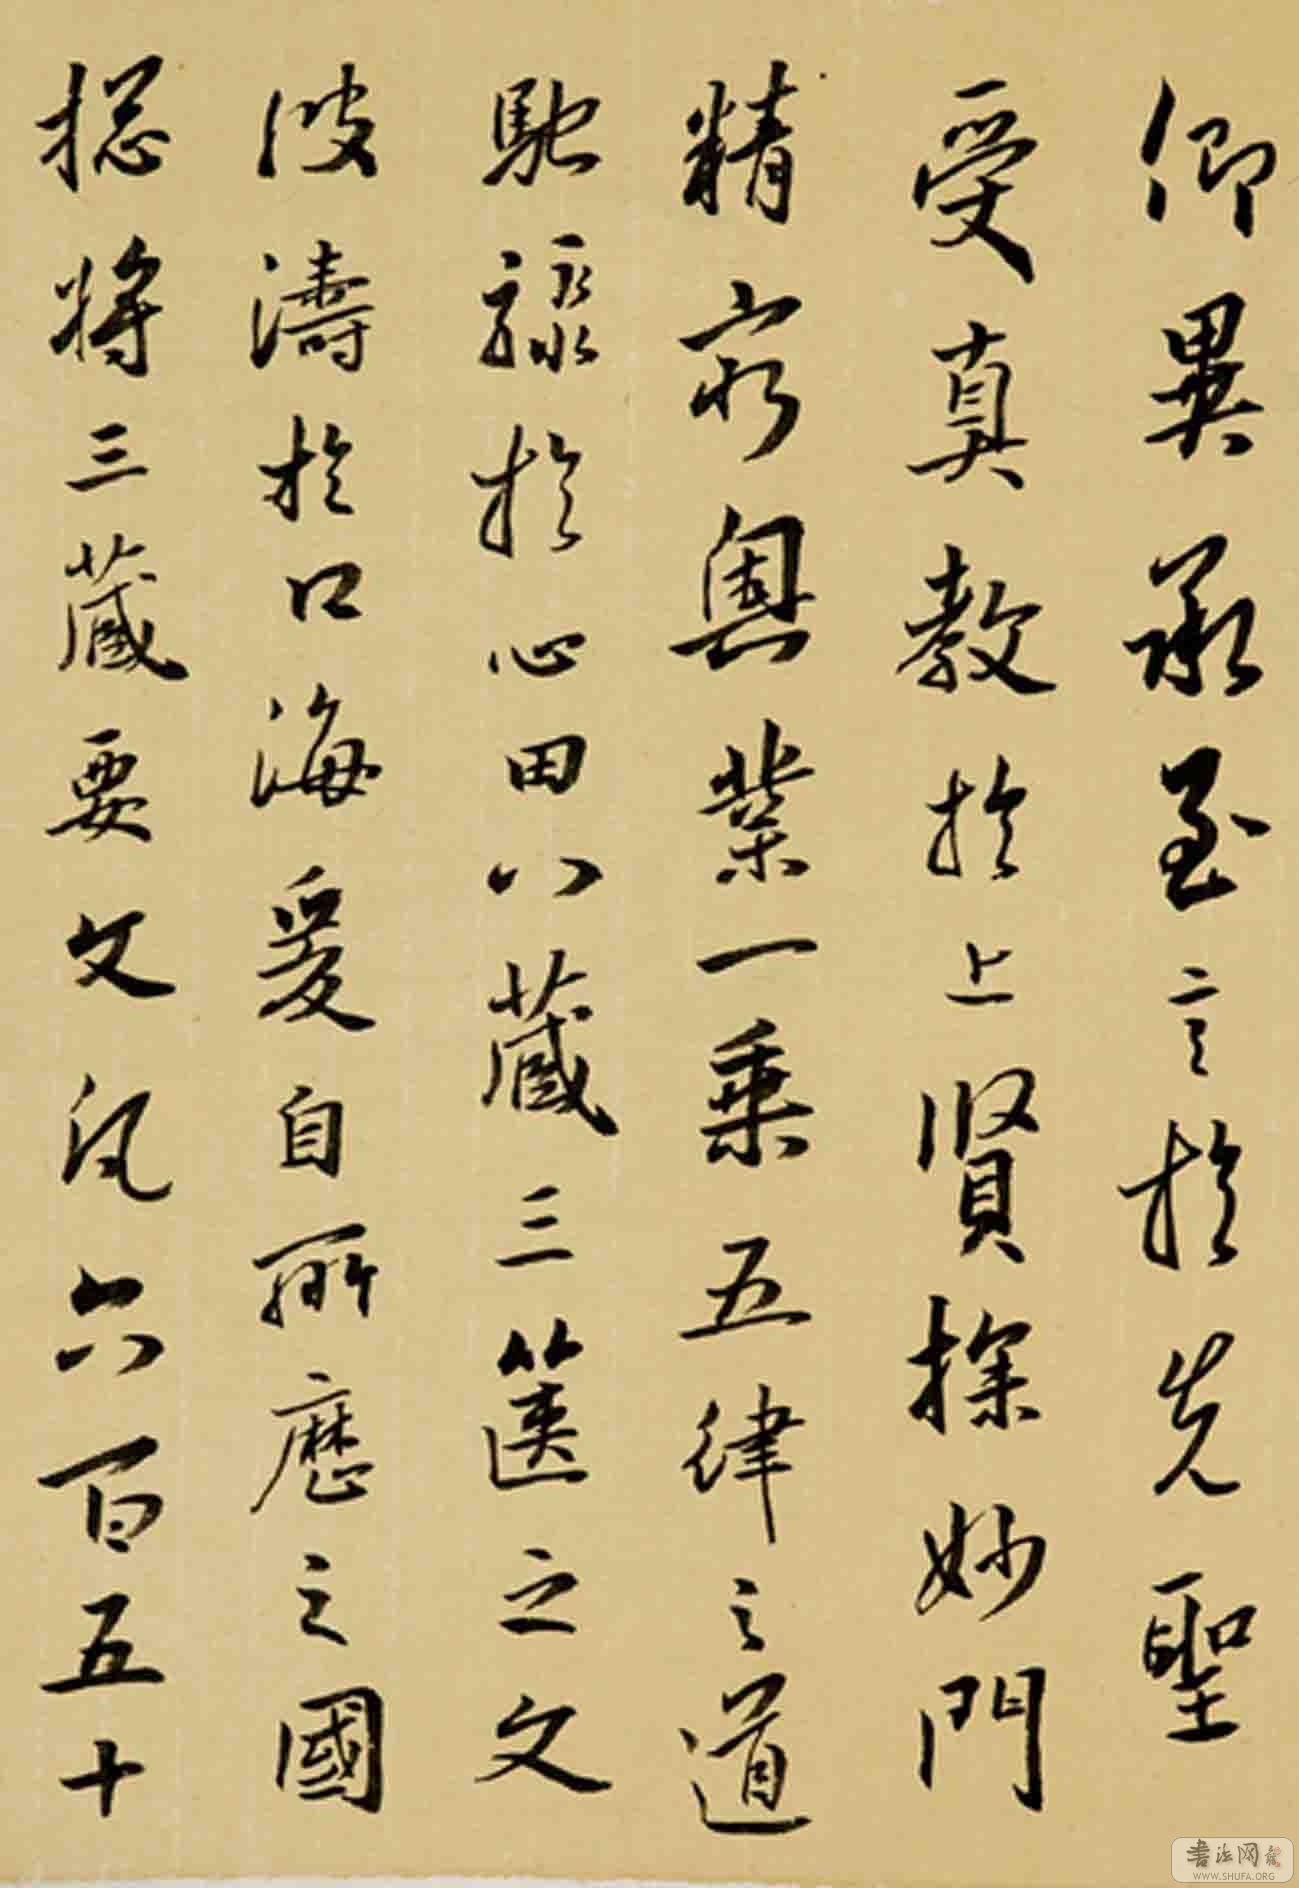 仰異承至言於先聖
受真教於上賢探妙門
精窮奧業一乘五律之道
馳驟於心田八藏三篋之文
波濤於口海爰自所歷之國
揔將三藏要文凡六百五十
書法网
WWW.SHUFA.ORG